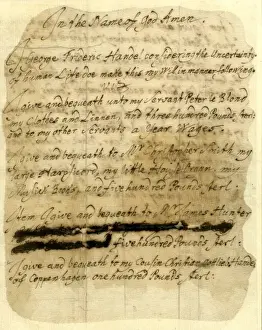 In the Name of God Amen.
I George Frideric Handel considering the Uncertainty
of human Life doe make this my Will in manner following
viz.
I give and bequeath unto my Servant Peter le Blond
my Clothes and Linnen, and three hundred Pounds sterl:
and to my other Servants a Year Wages.
I give and bequeath to Mr Christopher Smith my
large Harpsicord, my little House Organ, my
Musick Books, and five hundred Pounds sterl:
Item I give and bequeath to Mr James Hunter
five hundred Pounds sterl:
I give and bequeath to my Cousin Christian Gottlieb Handel
of Coppenhagen one hundred Pounds sterl: